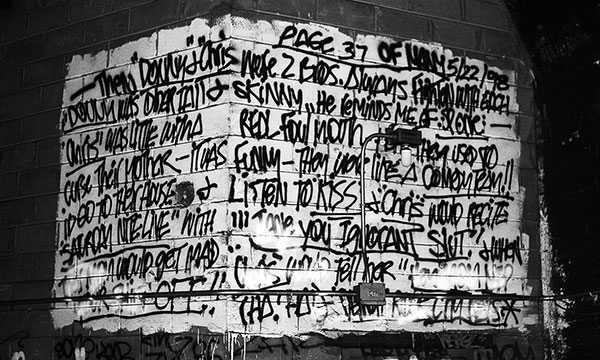 PAGE 37 OF MANY 5/22/98
— Then "Danny" & "Chris were 2 Bros. Always fightin with each
"Danny was older tall & skinny, He reminds me of
"Chris" was little with a real foul mouth they used to
curse their mother — it was funny — they were like a comedy team!!
I'd go to their house & listen to KISS & "Chris" would recite
"Saturday Nite Live" with "Jane you ignorant slut." & when
would get mad Chris would tell her"
OFF.!! (HA! HA!)